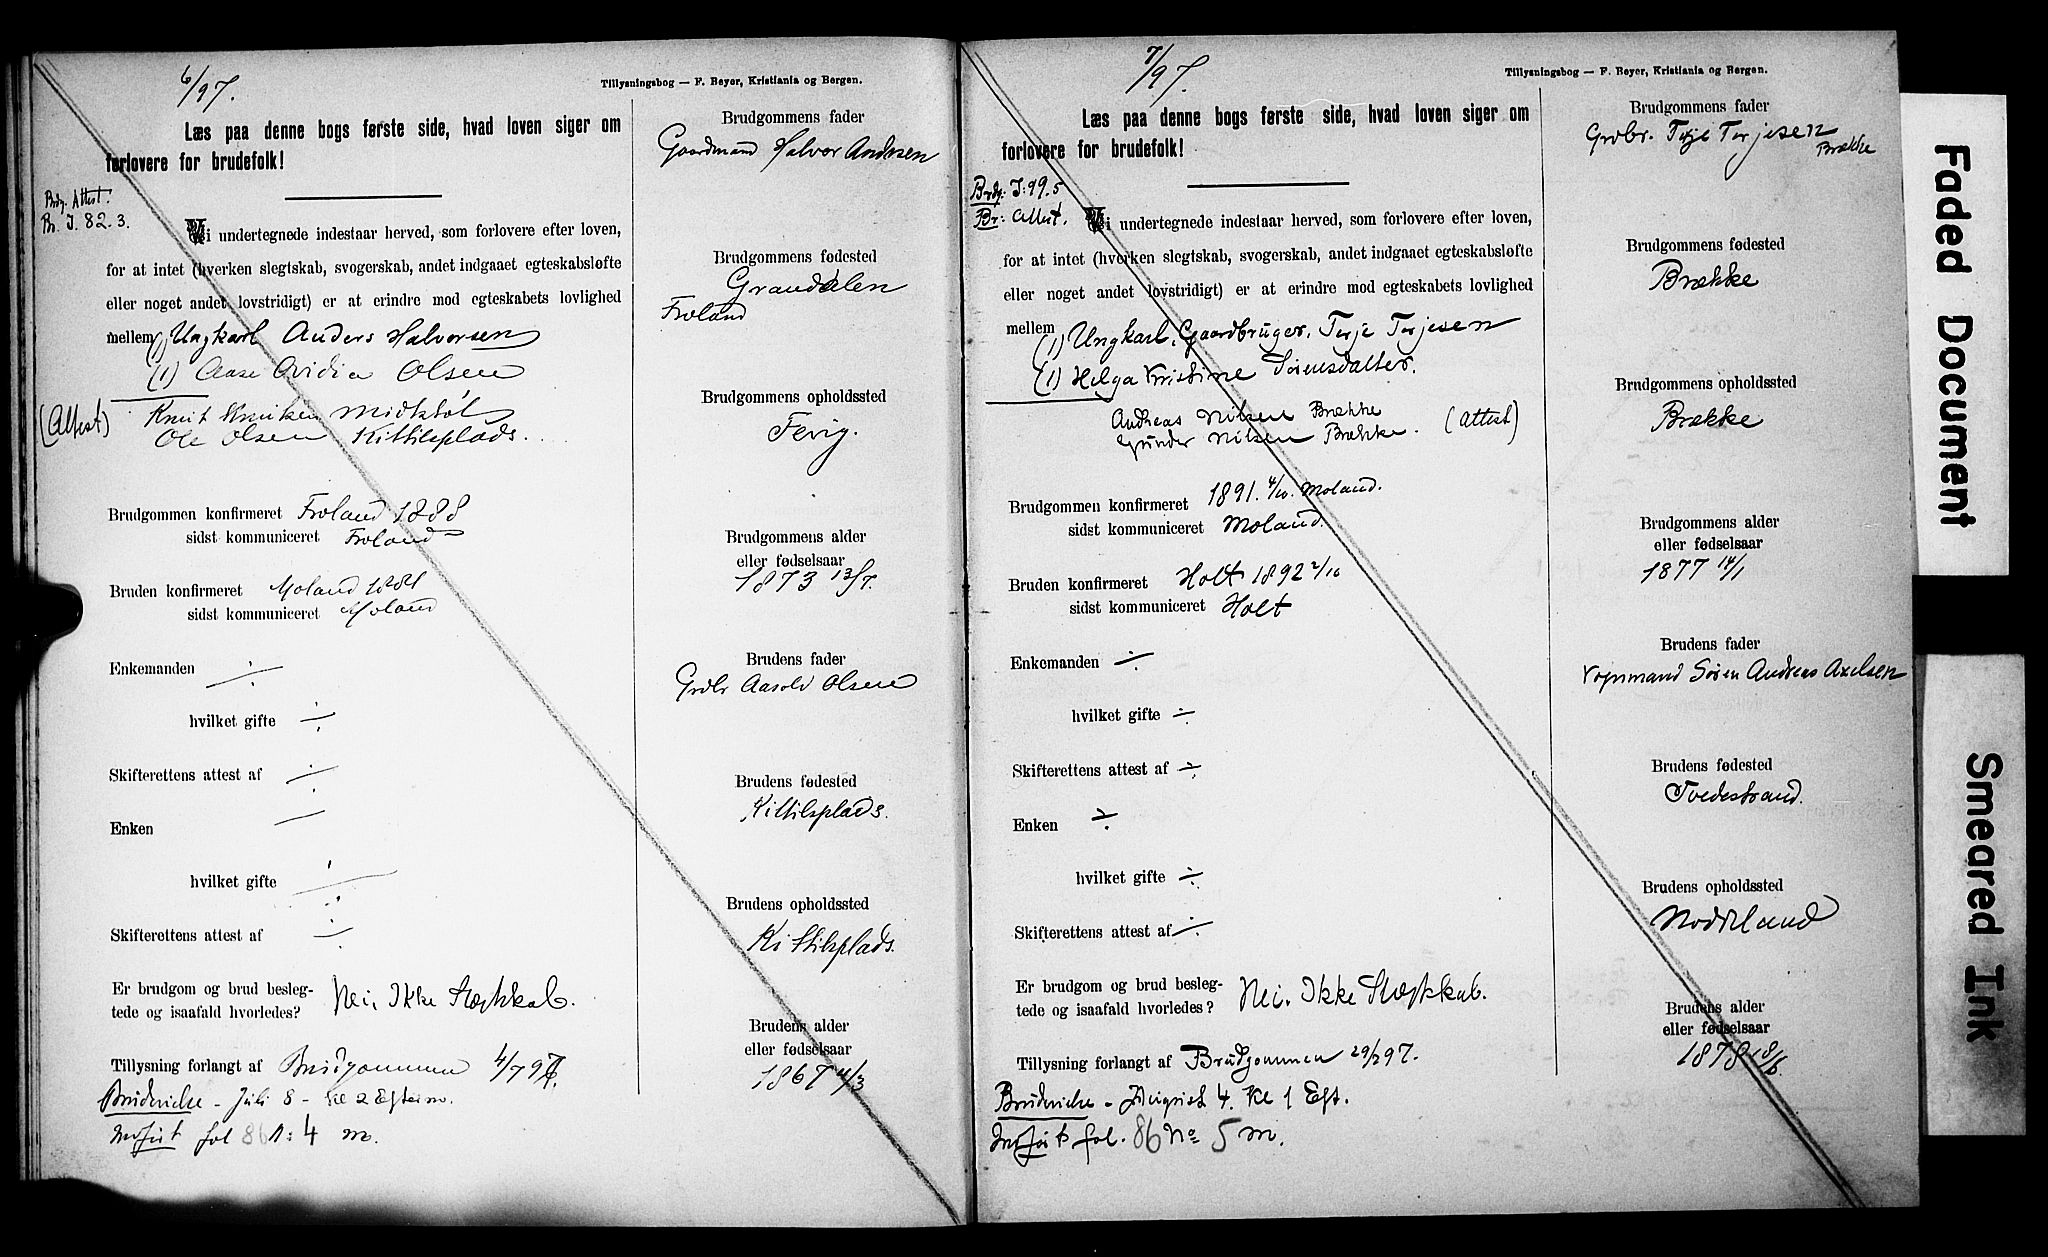 6/97.
Tillysningsbog — F. Beyer, Kristiania og Bergen.
Læs paa denne bogs første side, hvad loven siger om
forlovere for brudefolk!
Brdg. Attest.
Br. I. 82. 3.
Vi undertegnede indestaar herved, som forlovere efter loven,
for at intet (hverken slegtskab, svogerskab, andet indgaaet egteskabsløfte
eller noget andet lovstridigt) er at erindre mod egteskabets lovlighed
mellem (1) Ungkarl Anders Halvorsen
(1) Aase Ovidia Olsen
(Attest)
Knut Knutsen
Ole Olsen Kittilsplads.
Brudgommen konfirmeret Froland 1888
sidst kommuniceret Froland
Bruden konfirmeret Moland 1881
sidst kommuniceret Moland
Enkemanden ÷
hvilket gifte ÷
Skifterettens attest af ÷
Enken —
hvilket gifte ÷
Skifterettens attest af ÷
Er brudgom og brud besleg-
tede og isaafald hvorledes? Nei, Ikke Slægtskab.
Tillysning forlangt af Brudgommen 4/7 97.
Brudevielse - Juli 8 - Kl 2 Efterm.
Indført fol 86 N: 4 m.
Brudgommens fader
Gaardmand Halvor Andersen
Brudgommens fødested
Grandalen
Froland
Brudgommens opholdssted
Fevig.
Brudgommens alder
eller fødselsaar
1873 13/7.
Brudens fader
Grdbr Aasold Olsen
Brudens fødested
Kittilsplads.
Brudens opholdssted
Kittilsplads.
Brudens alder
eller fødselsaar
1867 4/3
7/97.
Tillysningsbog — F. Beyer, Kristiania og Bergen.
Læs paa denne bogs første side, hvad loven siger om
forlovere for brudefolk!
Brdg: I: 99. 5
Br: Attest.
Vi undertegnede indestaar herved, som forlovere efter loven,
for at intet (hverken slegtskab, svogerskab, andet indgaaet egteskabsløfte
eller noget andet lovstridigt) er at erindre mod egteskabets lovlighed
mellem (1) Ungkarl, Gaardbruger, Terje Terjesen
(1) Helga Kristine Sørensdatter.
Andreas Nilsen Brække
Gunder Nilsen Brække. (Attest)
Brudgommen konfirmeret 1891. 4/10. Moland.
sidst kommuniceret Moland.
Bruden konfirmeret Holt 1892 2/10
sidst kommuniceret Holt
Enkemanden ÷
hvilket gifte ÷
Skifterettens attest af ÷
Enken ÷
hvilket gifte ÷
Skifterettens attest af ÷
Er brudgom og brud besleg-
tede og isaafald hvorledes? Nei. Ikke Slægtskab.
Tillysning forlangt af Brudgommen 29/7 97.
Brudevielse - August 4. Kl 1 Eft.
Indført fol. 86 No 5 m.
Brudgommens fader
Grdbr. Terje Terjesen
Brække
Brudgommens fødested
Brække
Brudgommens opholdssted
Brække
Brudgommens alder
eller fødselsaar
1877 14/1
Brudens fader
Vognmand Søren Andreas Axelsen
Brudens fødested
Tvedestrand.
Brudens opholdssted
Brudens alder
eller fødselsaar
1878 18/6.
Faded Document
Smeared Ink